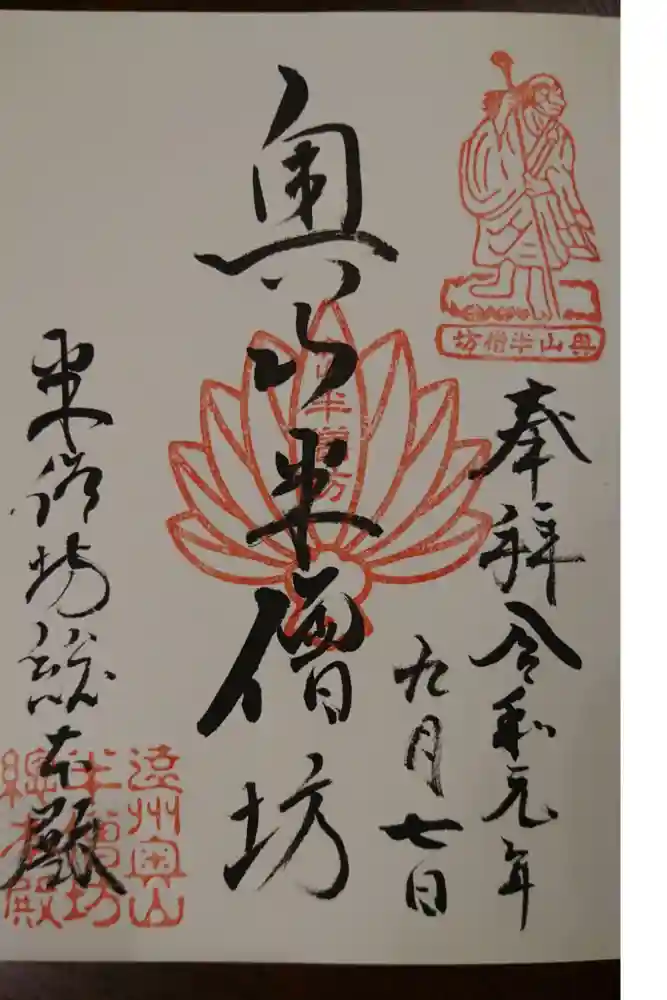 奉拜 令和元年
九月七日
奥山半僧坊
半僧坊総本殿
奥山半僧坊
半僧坊
遠州奥山
半僧坊
総本殿